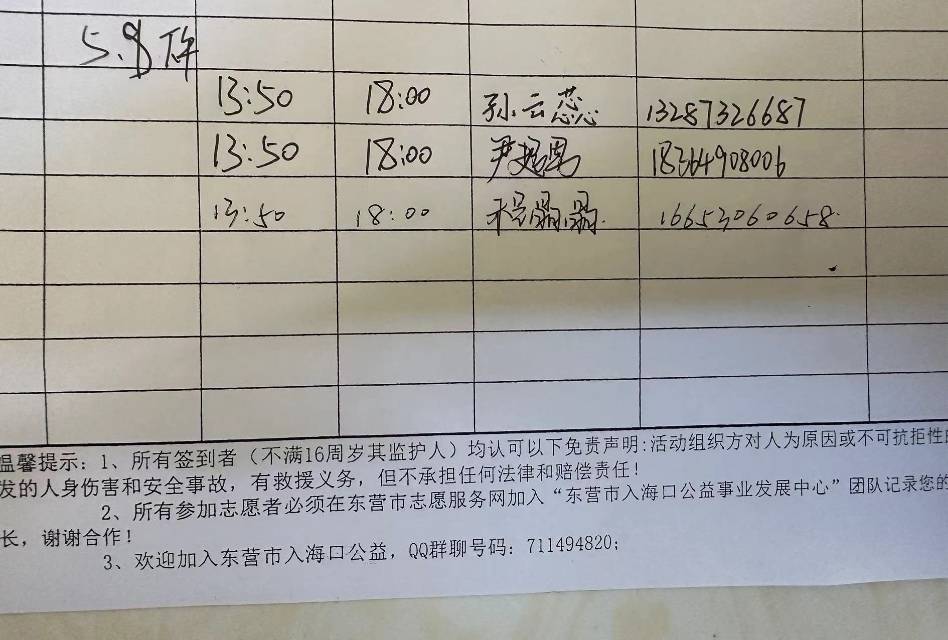 5.8下午
13:50 18:00 孙云蕊 13287326687
13:50 18:00 尹 男 18364908006
13:50 18:00 16653060658
温馨提示：1、所有签到者（不满16周岁其监护人）均认可以下免责声明:活动组织方对人为原因或不可抗拒性的
发的人身伤害和安全事故，有救援义务，但不承担任何法律和赔偿责任!
2、所有参加志愿者必须在东营市志愿服务网加入“东营市入海口公益事业发展中心”团队记录您的
长，谢谢合作!
3、欢迎加入东营市入海口公益，QQ群聊号码：711494820;